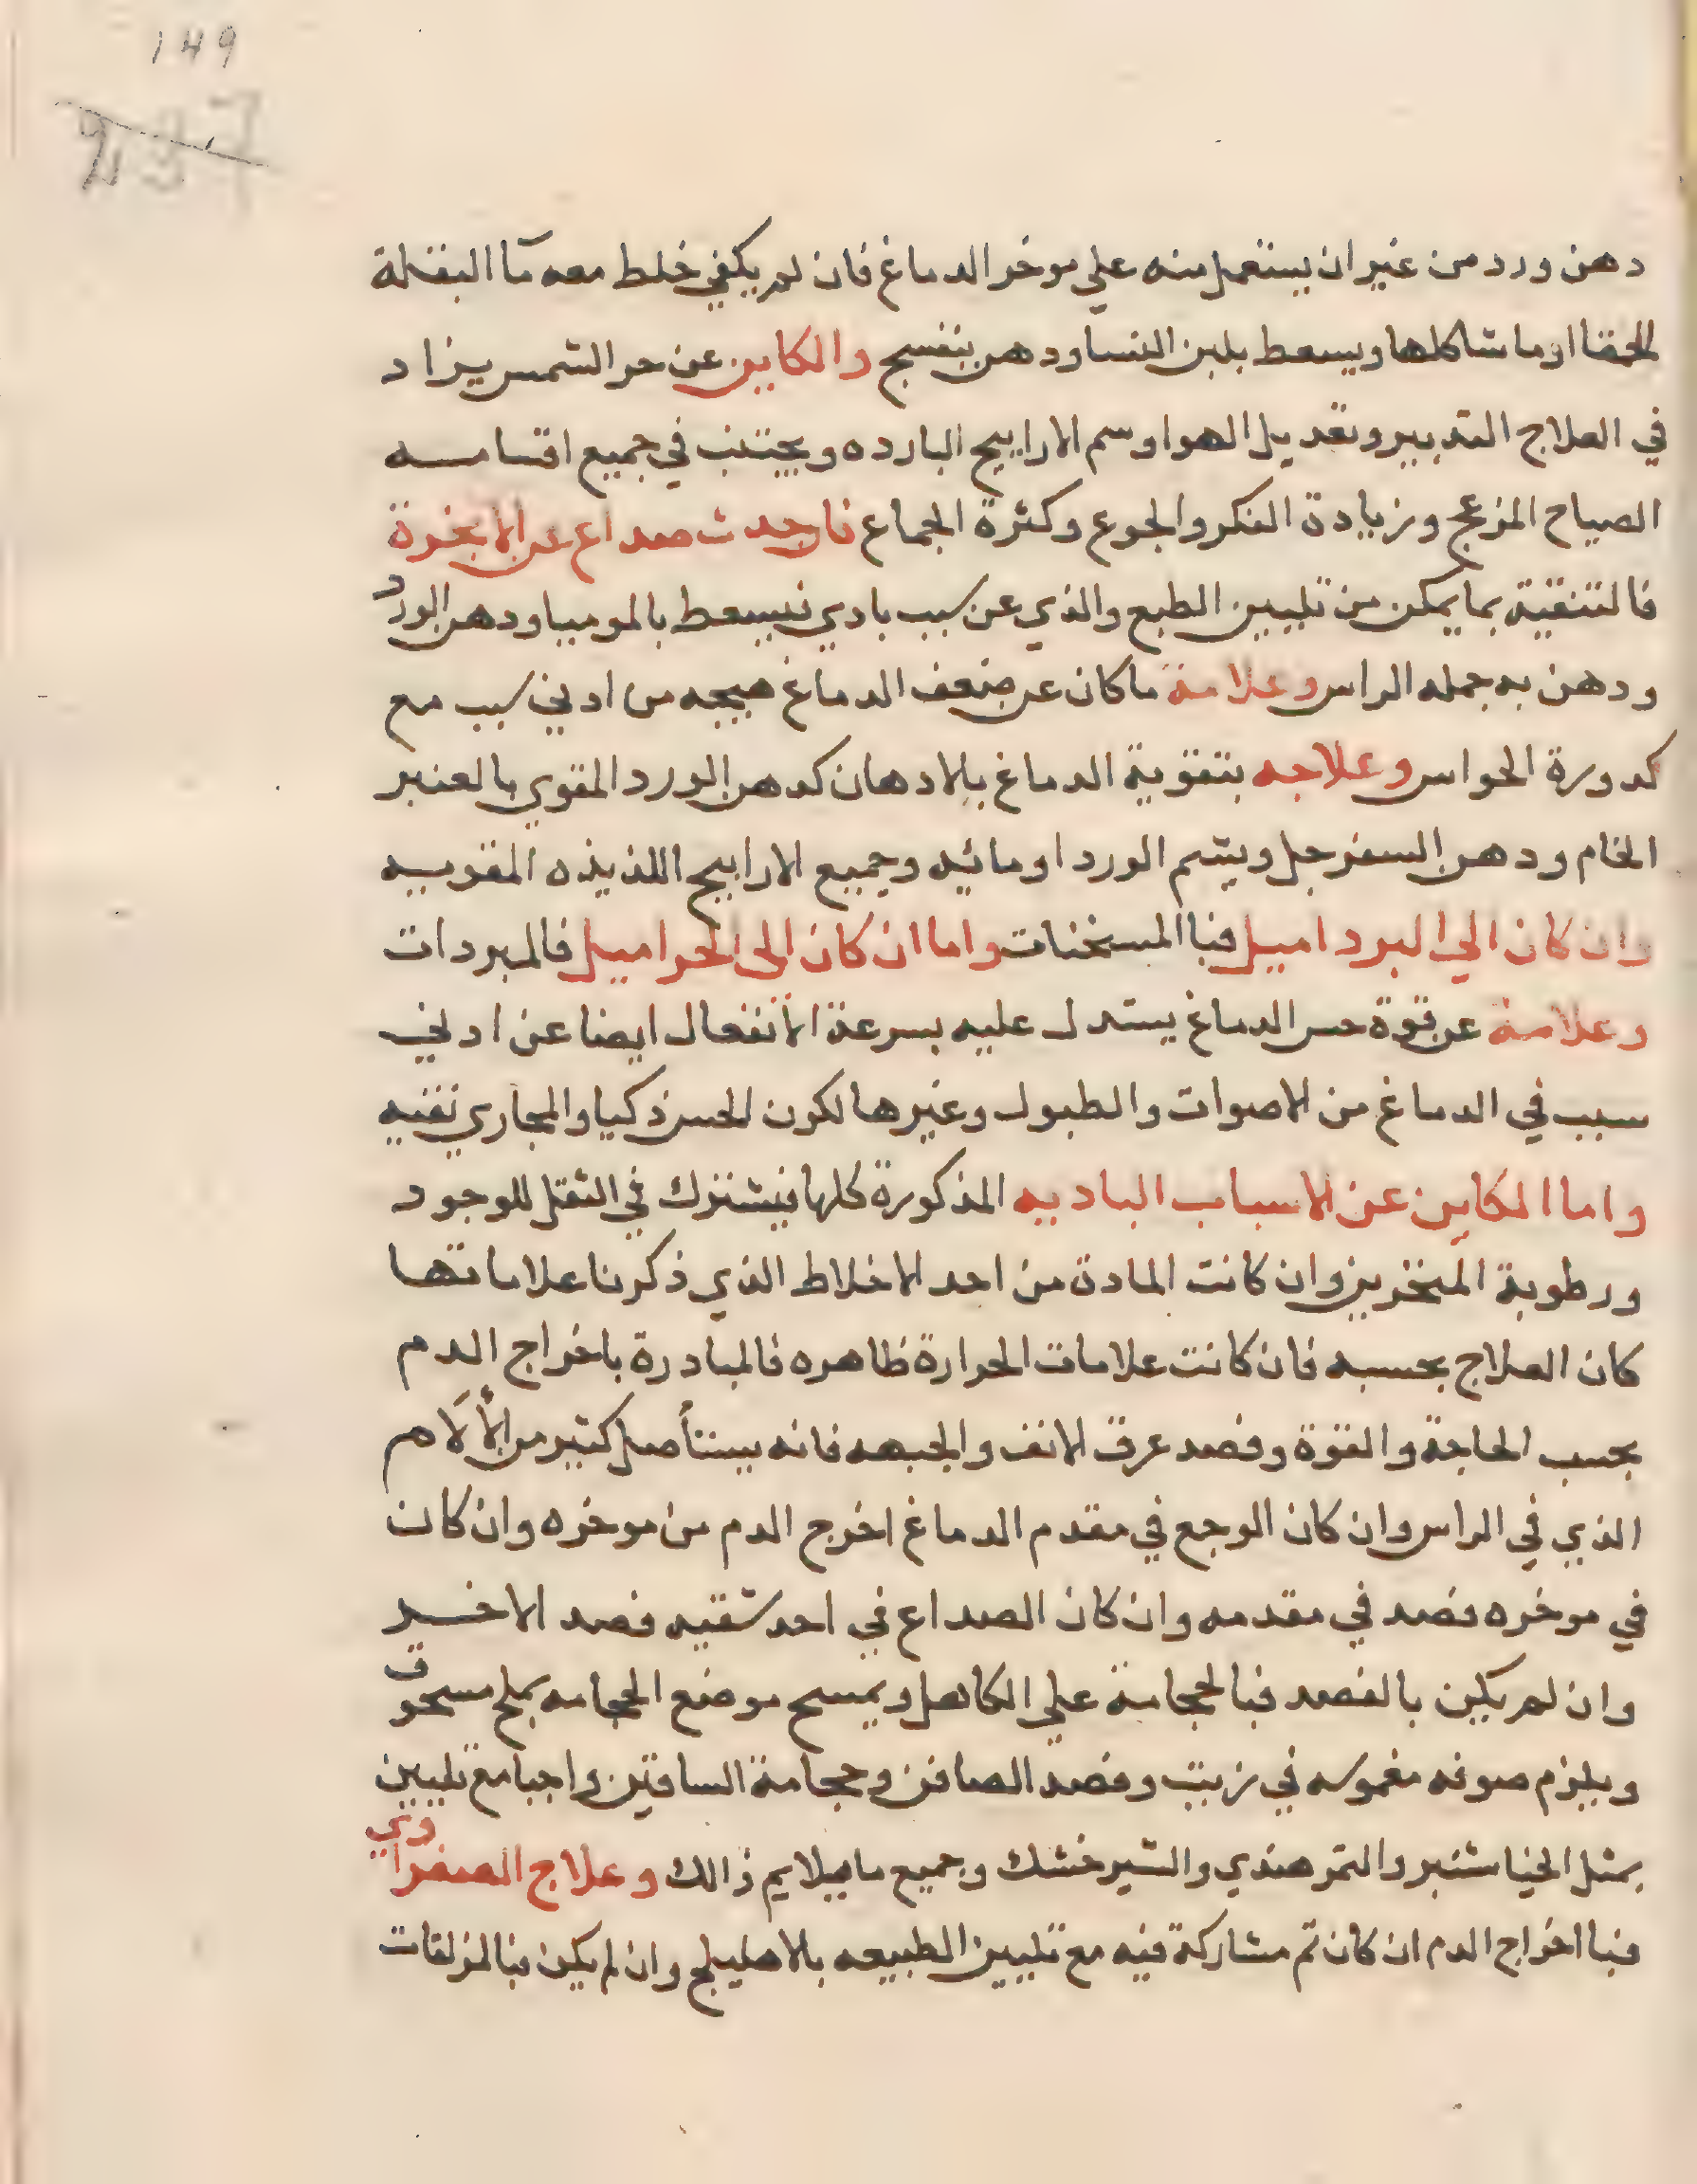 149
237
دهن ورد من غير ان يستعمل منه علي موخر الدماغ فان لم يكفي خلط معه مآ البقلة
الحمقا او ما شاكلها ويسعط بلبن النسا ودهن بنفسج والكاين عن حر الشمس يزاد
في العلاج التدبير وتعديل الهوا وسم الارابيح البارده ويجتنب في جميع اقسامه
الصياح المزعج وزيادة الفكر والجوع وكثرة الجماع فان حدث صداع عن الابخرة
فالتنقية بما يمكن من تليين الطبع والذي عن سبب بادي فيسعط بالموميا ودهن الورد
ودهن به جمله الراس وعلامة ما كان عن ضعف الدماغ هيجه من ادني سبب مع
كدورة الحواس وعلاجه بتقوية الدماغ بالادهان كدهن الورد المقوي بالعنبر
الخام ودهن السفرجل ويشم الورد او مائيه وجميع الارابيح اللذيذه المقويه
وان كان الي البرد اميل فبا المسخنات واما ان كان الى الحر اميل فالمبردات
وعلامة عن قوة حس الدماغ يستدل عليه بسرعة الانفعال ايضا عن ادني
سبب في الدماغ من الاصوات والطبول وغيرها لكون الحس ذكيا والمجاري نقيه
واما الكاين عن الاسباب الباديه المذكورة كلها فيشترك في الثقل للوجود
ورطوبة المنخرين وان كانت المادة من احد الاخلاط الذي ذكرنا علاماتها
كان العلاج بحسبه فان كانت علامات الحرارة ظاهره فالمبادرة باخراج الدم
بحسب الحاجة والقوة وفصد عرق الانف والجبهه فانه يستأصل كثير من الألاهم
الذي في الراس وان كان الوجع في مقدم الدماغ اخرج الدم من موخره وان كان
في موخره فصد في مقدمه وان كان الصداع في احد شقيه فصد الاخر
وان لم يكن بالفصد فبالحجامة علي الكاهل ويمسح موضع الحجامه بملح مسحوق
ويلزم صوفه مغموسه في زيت وفصد الصافن وحجامة الساقين واجبا مع تليين
بمثل الخياشنبر والتمر هندي والشيرخشك وجميع ما يلايم ذالك وعلاج الصفراوي
فبا اخراج الدم ان كان ثم مشاركة فيه مع تليين الطبيعه بالاهليلج وان لم يكن فبالمزلقات